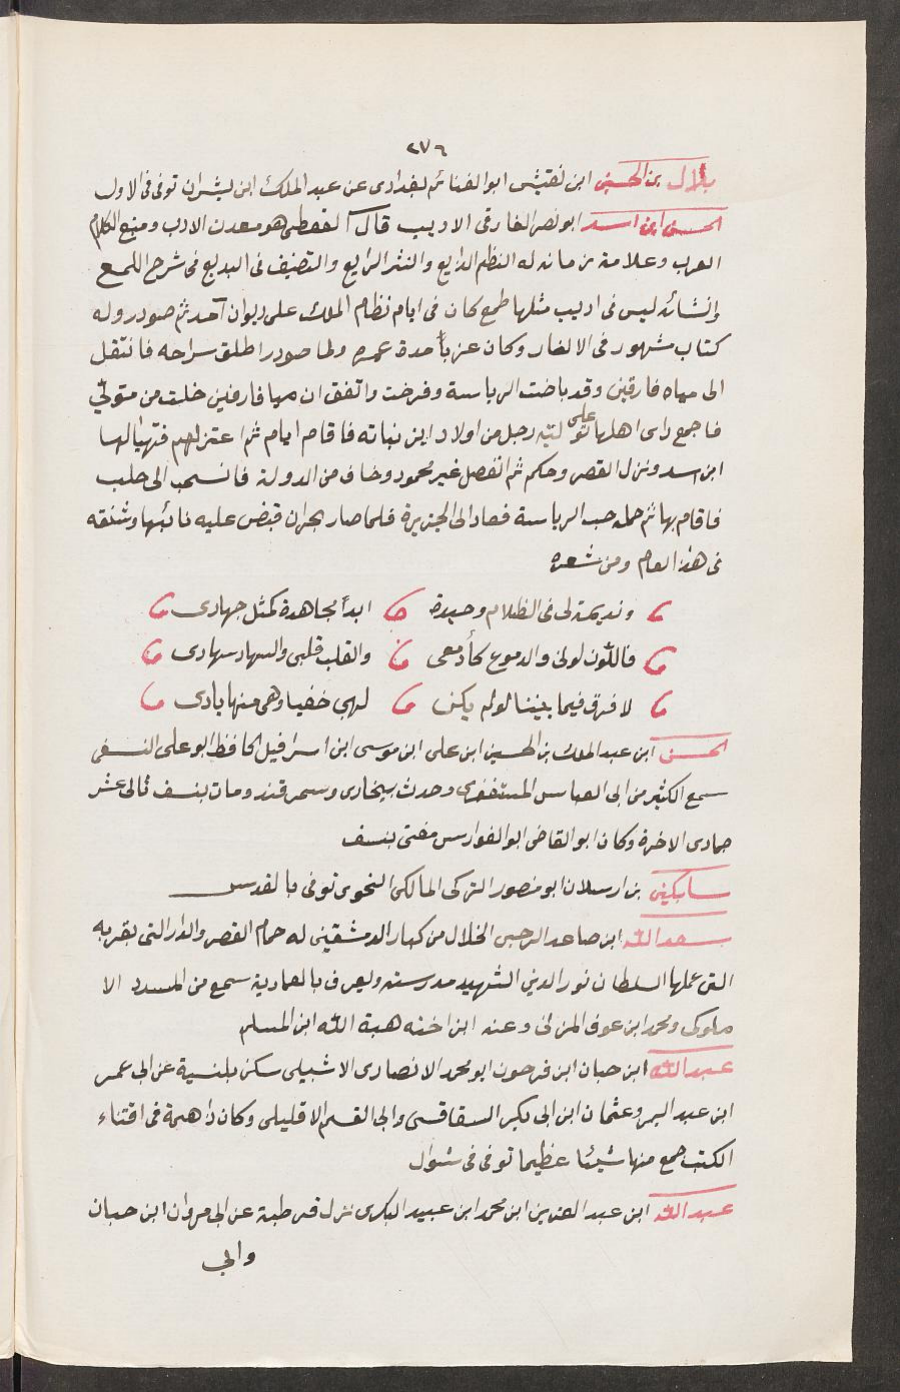 ٢٧٦
بلال بن الحسين ابن نقيش ابو الغنائم بغدادى عن عبد الملك ابن بشران توفى فى الاول
الحسن ابن اسد ابو نصر الفارقى الاديب قال القفطى هو معدن الادب ومنبع الكلام
العرب وعلامة زمانه له النظم الرايع والنثر الرايع والتصنيف فى البديع فى شرح اللمع
وانشائه ليس فى اديب مثلها طمع كان فى ايام نظام الملك على ديوان آمد ثم صودر وله
كتاب مشهور فى الالغاز وكان عزبا مدة عمره ولما صودر اطلق سراحه فانتقل
الى مياه فارقين وقد باضت الرياسة وفرخت واتفق ان ميافارقين خلت من متولي
فاجمع راى اهلها على تولية رجل من اولاد ابن نباته فاقام ايام ثم اعتزلهم فتهيا لها
ابن اسد ونزل القصر وحكم ثم انفصل غير محمود وخاف من الدولة فانسحب الى حلب
فاقام بها ثم حمله حب الرياسة فعاد الى الجزيرة فلما صار بحران قبض عليه نائبها وشنقه
فى هذا العام ومن شعره
ونديمة لى فى الظلام وحيدة ابدأ مجاهدة كمثل جهادى
فاللون لونى والدموع كأدمعى والقلب قلبى والسهاد سهادى
لا فرق فيما بيننا لو لم يكن لهبى خفيا وهى منها بادى
الحسن ابن عبد الملك بن الحسين ابن على ابن موسى ابن اسرافيل الحافظ ابو على النسفى
سمع الكثير من ابى العباس المستغفرى وحدث ببخارى وسمرقند ومات بنسف ثانى عشر
جمادى الاخرة وكان ابو القاضى ابو الفوارس مفتى بنسف
سابكين بن ارسلان ابو منصور التركى المالكى النحوى توفى بالقدس
سعد الله ابن صاعد الرحبى الخلال من كبار الدمشقين له حمام القصر والدار التى بقربه
التى عملها السلطان نور الدين الشهيد مدرسته ويعرف بالعمادية سمع من المسدد الا
ملوكى ومحمد ابن عوف المزنى وعنه ابن اخته هبة الله ابن المسلم
عبد الله ابن حبان ابن فرحون ابو محمد الانصارى الاشبيلى سكن بلنسية عن ابى عمر
ابن عبد البر وعثمان ابن ابى بكر السفاقسى وابى القسم الاقليلى وكان ذا همة فى اقتناء
الكتب جمع منها شيئا عظيما توفى فى شوال
عبد الله ابن عبد العزيز ابن محمد ابن عبيد البكرى نزل قرطبة عن ابى مروان ابن حبان
وابى